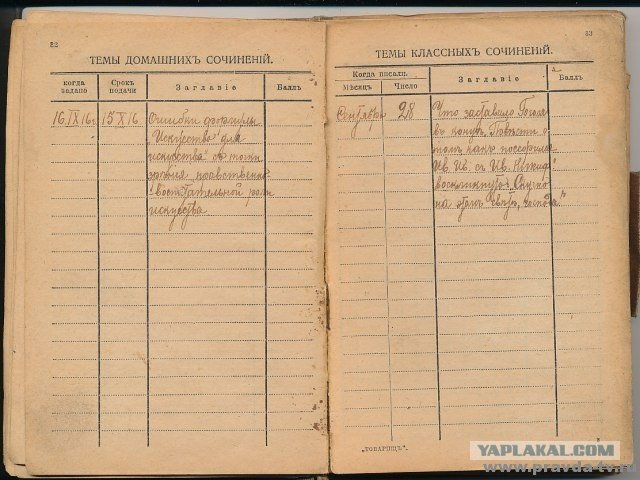 32
ТЕМЫ ДОМАШНИХЪ СОЧИНЕНІЙ.
когда задано
Срокъ подачи
Заглавіе
Баллъ
16 IX 16 г.
15 X 16
Ошибки формулы
"Искусство для
искусства" съ точки
зрѣнія нравственно
воспитательной роли
искусства
33
ТЕМЫ КЛАССНЫХЪ СОЧИНЕНІЙ.
Когда писали.
Мѣсяцъ
Число
Заглавіе
Баллъ
Сентябрь
28
Что заставило Гоголя
въ концѣ "Повѣсти о
томъ какъ поссорился
Ив. Ив. съ Ив. Никиф."
воскликнуть: "Скучно
на этомъ свѣтѣ, господа"
"ТОВАРИЩЪ".
YAPLAKAL.COM
www.pravda-tv.ru